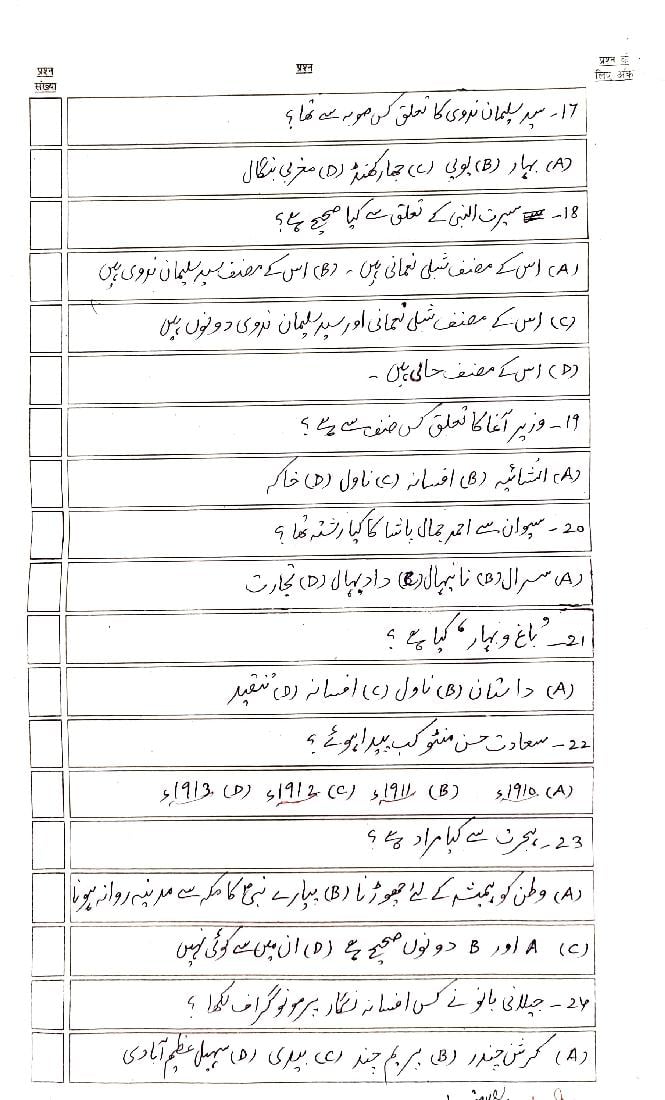 प्रश्न संख्या
प्रश्न
प्रश्न के लिए अंक
17۔ سید سلیمان ندوی کا تعلق کس صوبہ سے تھا؟
(A) بہار (B) یوپی (C) جھارکھنڈ (D) مغربی بنگال
18۔ سیرت النبی کے تعلق سے کیا صحیح ہے؟
(A) اس کے مصنف شبلی نعمانی ہیں ۔ (B) اس کے مصنف سید سلیمان ندوی ہیں
(C) اس کے مصنف شبلی نعمانی اور سید سلیمان ندوی دونوں ہیں
(D) اس کے مصنف حالی ہیں ۔
19۔ وزیر آغا کا تعلق کس صنف سے ہے؟
(A) انشائیہ (B) افسانہ (C) ناول (D) خاکہ
20۔ سیوان سے احمد جمال پاشا کا کیا رشتہ تھا؟
(A) سسرال (B) نانیہال (C) دادیہال (D) تجارت
21۔ ’باغ و بہار‘ کیا ہے؟
(A) داستان (B) ناول (C) افسانہ (D) تنقید
22۔ سعادت حسن منٹو کب پیدا ہوئے؟
(A) 1910ء (B) 1911ء (C) 1912ء (D) 1913ء
23۔ ہجرت سے کیا مراد ہے؟
(A) وطن کو ہمیشہ کے لئے چھوڑنا (B) پیارے نبیؐ کا مکہ سے مدینہ روانہ ہونا
(C) A اور B دونوں صحیح ہے (D) ان میں سے کوئی نہیں
24۔ جیلانی بانو نے کس افسانہ نگار پر مونوگراف لکھا؟
(A) کرشن چندر (B) پریم چند (C) بیدی (D) سہیل عظیم آبادی